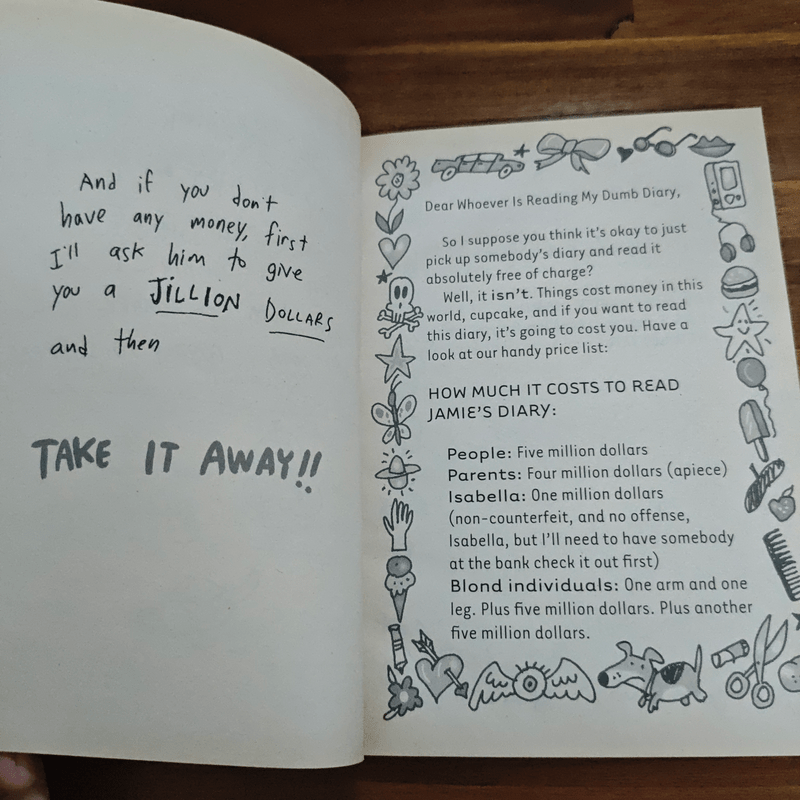 And if you don't
have any money, first
I'll ask him to give
you a JILLION DOLLARS
and then
TAKE IT AWAY!!
Dear Whoever Is Reading My Dumb Diary,
So I suppose you think it's okay to just
pick up somebody's diary and read it
absolutely free of charge?
Well, it isn't. Things cost money in this
world, cupcake, and if you want to read
this diary, it's going to cost you. Have a
look at our handy price list:
HOW MUCH IT COSTS TO READ
JAMIE'S DIARY:
People: Five million dollars
Parents: Four million dollars (apiece)
Isabella: One million dollars
(non-counterfeit, and no offense,
Isabella, but I'll need to have somebody
at the bank check it out first)
Blond individuals: One arm and one
leg. Plus five million dollars. Plus another
five million dollars.